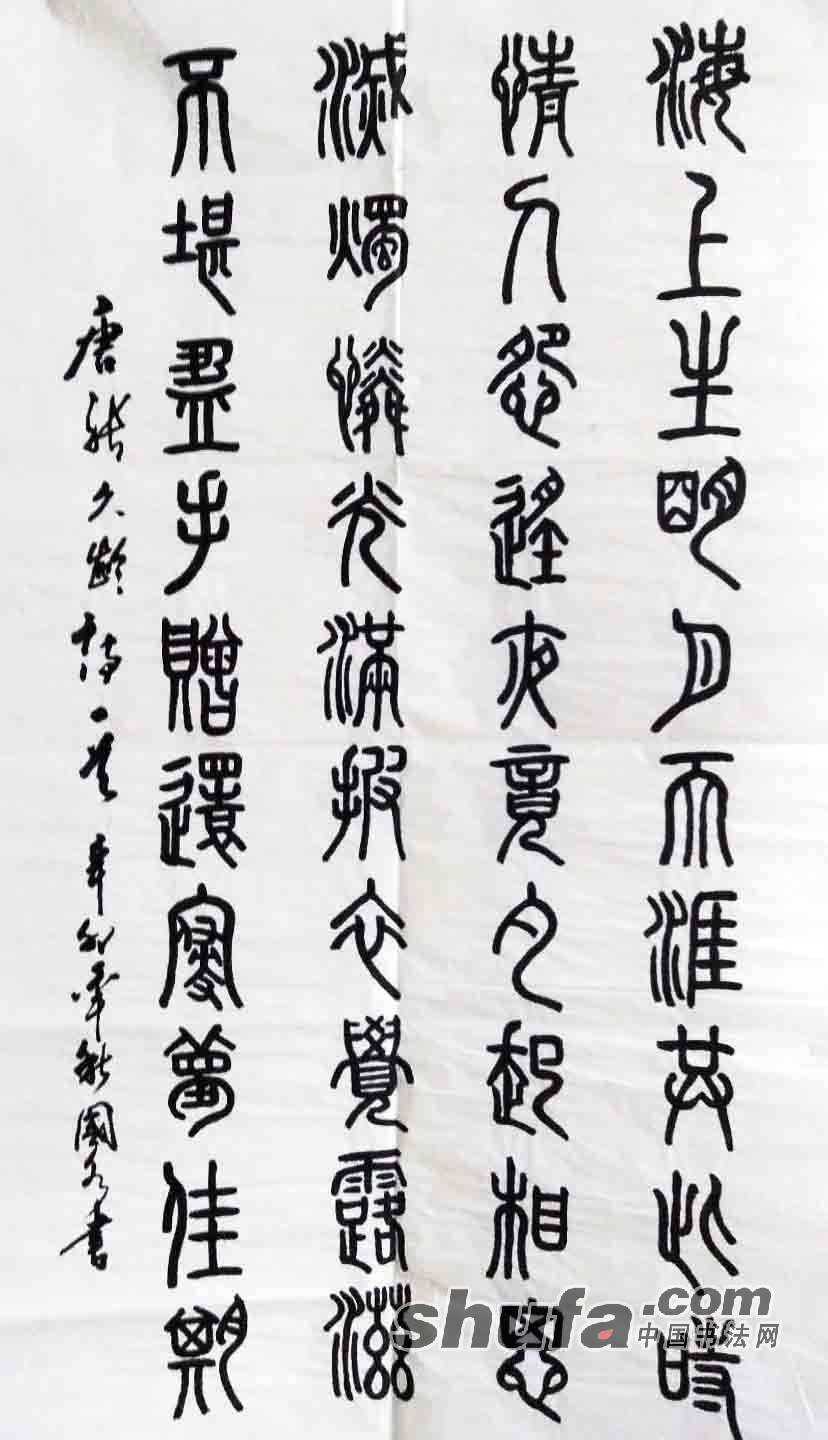 海上生明月天涯共此時
情人怨遙夜竟夕起相思
滅燭憐光滿披衣覺露滋
不堪盈手贈還寢夢佳期
唐張九齡詩一首 辛卯年秋國書
shufa.com
中国书法网